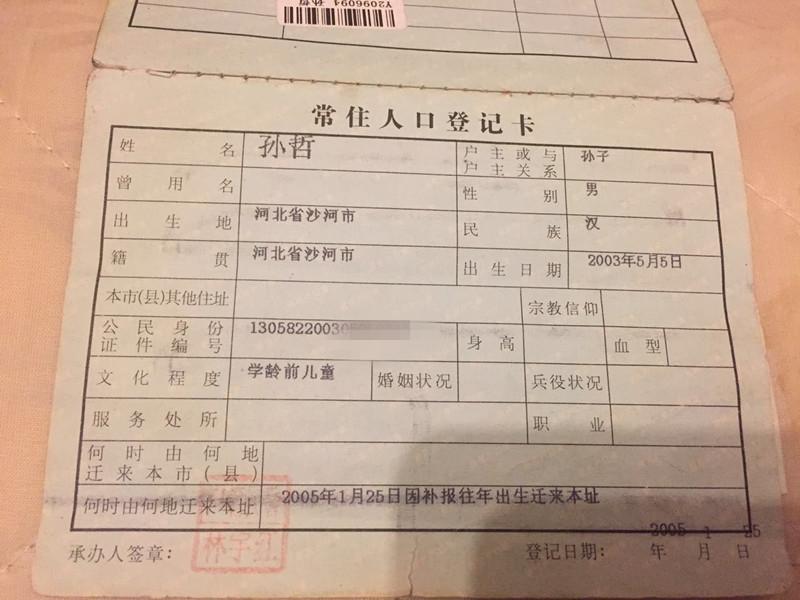 Y2096094 孙哲
常住人口登记卡
姓名 孙哲 户主或与户主关系 孙子
曾用名 性别 男
出生地 河北省沙河市 民族 汉
籍贯 河北省沙河市 出生日期 2003年5月5日
本市(县)其他住址 宗教信仰
公民身份证件编号 13058220030 身高 血型
文化程度 学龄前儿童 婚姻状况 兵役状况
服务处所 职业
何时由何地迁来本市(县)
何时由何地迁来本址 2005年1月25日因补报往年出生迁来本址
承办人签章: 林宇红 登记日期: 2005年1月25日